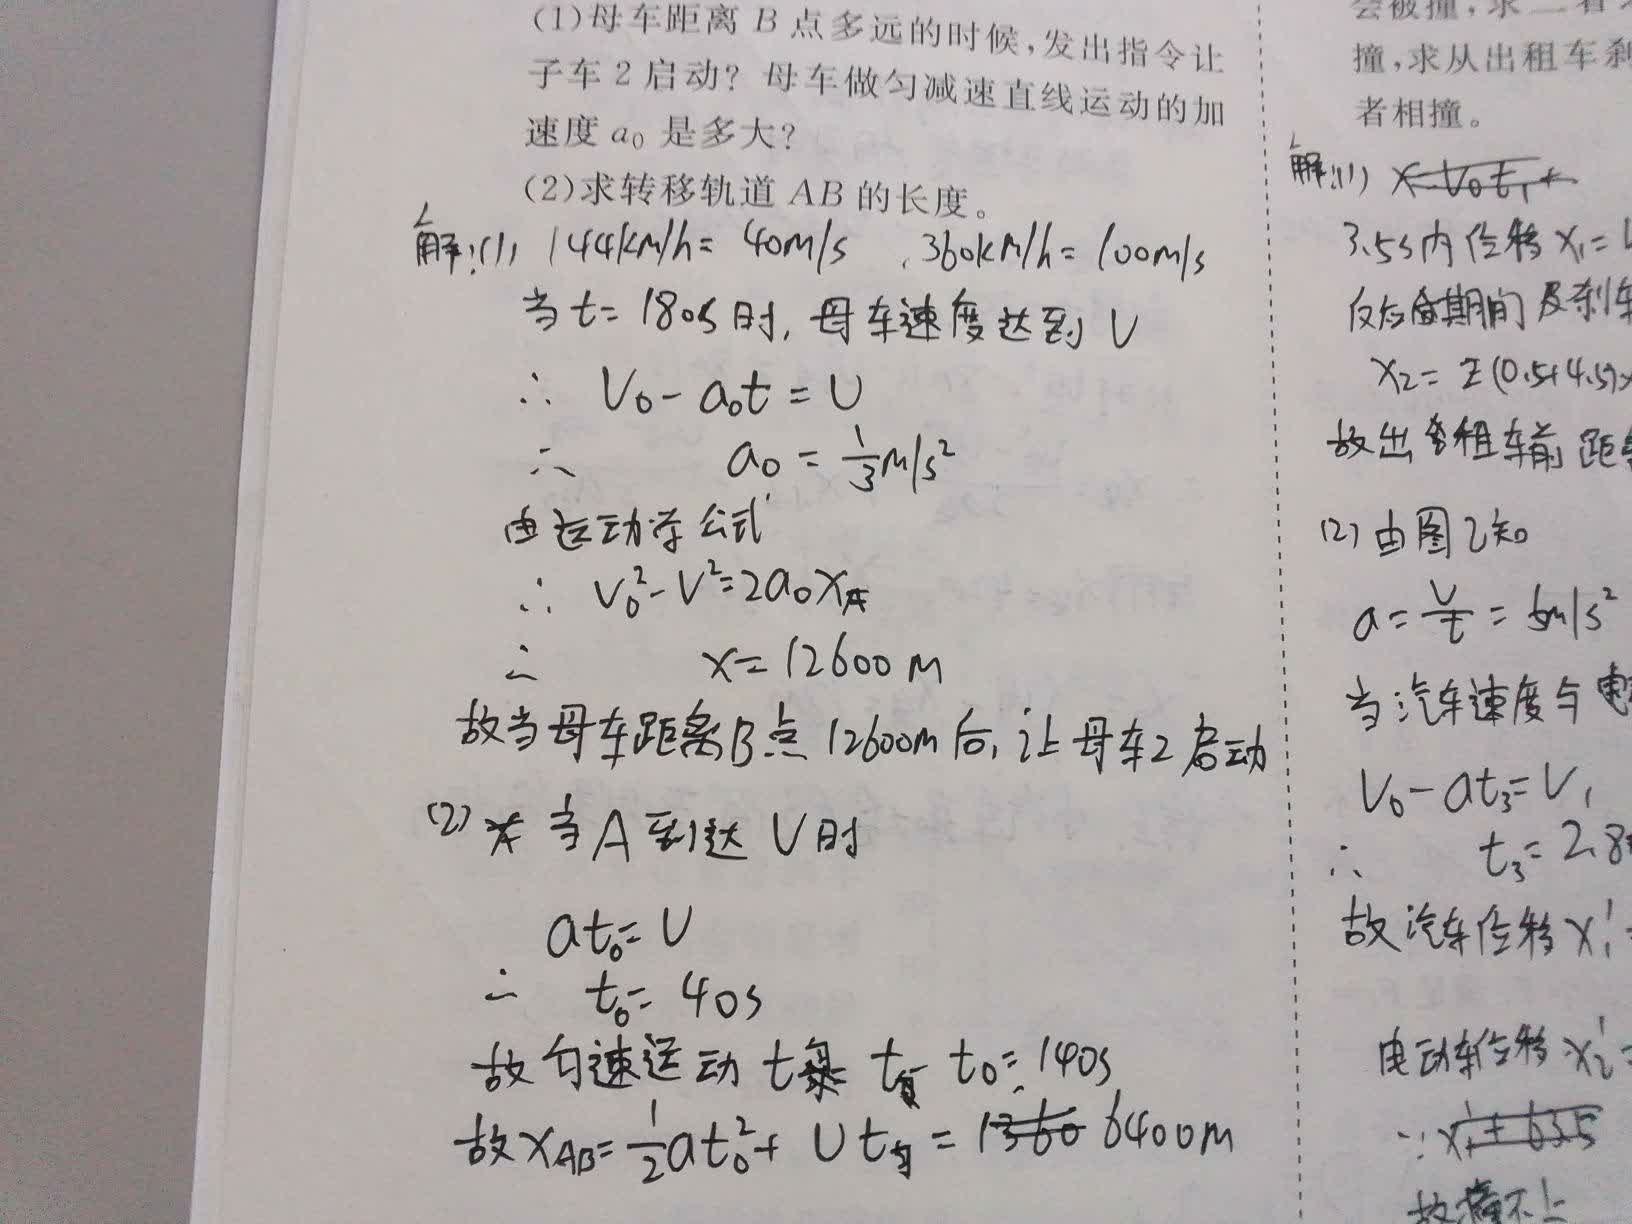 (1)母车距离B点多远的时候,发出指令让
子车2启动? 母车做匀减速直线运动的加
速度a₀是多大?
(2)求转移轨道AB的长度。
解:(1) 144km/h= 40m/s ,360km/h=100m/s
当t= 180s时,母车速度达到V
∴ V₀-a₀t=V
∴ a₀=1/3m/s²
由运动学公式
∴ V₀²-V²=2a₀x
∴ x=12600m
故当母车距离B点12600m后,让母车2启动
(2) 当A到达V时
at₀=V
∴ t₀=40s
故匀速运动 t₀=140s
故x_AB=1/2at₀²+Vt匀=1360 6400m
会被撞,求二者
撞,求从出租车刹
者相撞。
解:(1) x=V₀t₁+
3.5s内位移x₁=
反应期间及刹车
x₂=(0.5+4.5)×
故出租车前距
(2)由图乙知
a=V/t=5m/s²
当汽车速度与电
V₀-at₃=V₁
∴ t₃=2.8
故汽车位移x₁'
电动车位移x₂'=
故撞不上